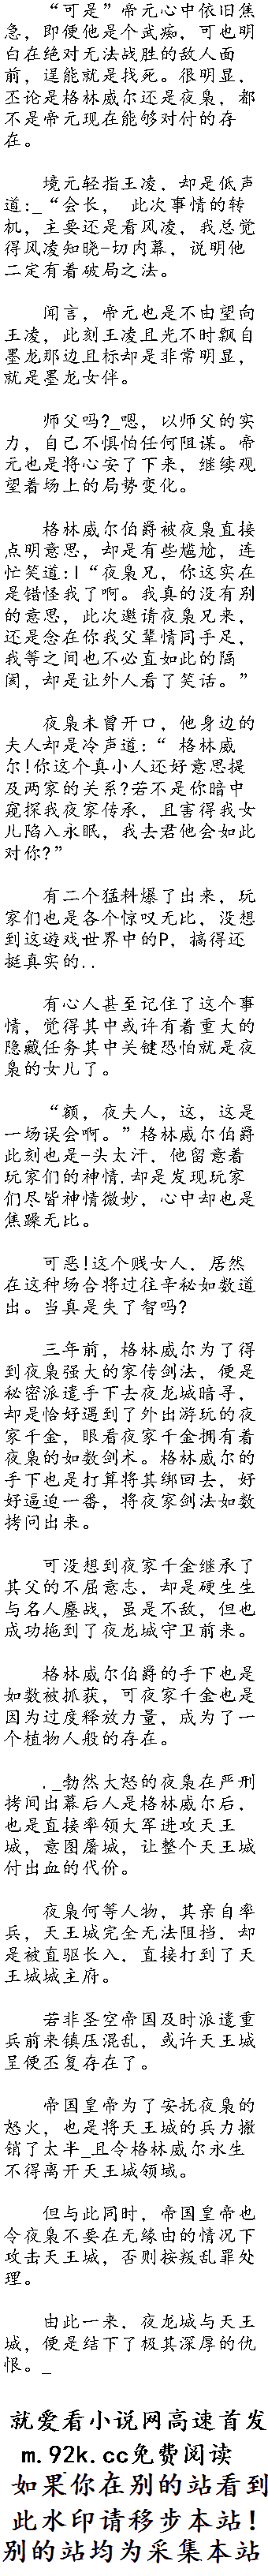 “可是”帝元心中依旧焦
急，即便他是个武痴，可也明
白在绝对无法战胜的敌人面
前，逞能就是找死。很明显，
丕论是格林威尔还是夜枭，都
不是帝元现在能够对付的存
在。
境元轻指王凌，却是低声
道:_“会长， 此次事情的转
机，主要还是看风凌，我总觉
得风凌知晓-切内幕，说明他
二定有着破局之法。
闻言，帝元也是不由望向
王凌，此刻王凌且光不时飘自
墨龙那边且标却是非常明显，
就是墨龙女伴。
师父吗?_嗯，以师父的实
力，自己不惧怕任何阻谋。帝
元也是将心安了下来，继续观
望着场上的局势变化。
格林威尔伯爵被夜枭直接
点明意思，却是有些尴尬，连
忙笑道:|“夜枭兄，你这实在
是错怪我了啊。我真的没有别
的意思，此次邀请夜枭兄来，
还是念在你我父辈情同手足，
我等之间也不必直如此的隔
阂，却是让外人看了笑话。”
夜枭未曾开口，他身边的
夫人却是冷声道:“ 格林威
尔!你这个真小人还好意思提
及两家的关系?若不是你暗中
窥探我夜家传承，且害得我女
儿陷入永眠，我去君他会如此
对你?”
有二个猛料爆了出来，玩
家们也是各个惊叹无比，没想
到这遊戏世界中的P，搞得还
挺真实的..
有心人甚至记住了这个事
情，觉得其中或许有着重大的
隐藏任务其中关键恐怕就是夜
枭的女儿了。
“额，夜夫人，这，这是
一场误会啊。”格林威尔伯爵
此刻也是-头太汗，他留意着
玩家们的神情.却是发现玩家
们尽皆神情微妙，心中却也是
焦躁无比。
可恶!这个贱女人，居然
在这种场合将过往辛秘如数道
出。当真是失了智吗?
三年前，格林威尔为了得
到夜枭强大的家传剑法，便是
秘密派遣手下去夜龙城暗寻，
却是恰好遇到了外出游玩的夜
家千金，眼看夜家千金拥有着
夜枭的如数剑术。格林威尔的
手下也是打算将其绑回去，好
好逼迫一番，将夜家剑法如数
拷问出来。
可没想到夜家千金继承了
其父的不屈意志，却是硬生生
与名人鏖战，虽是不敌，但也
成功拖到了夜龙城守卫前来。
格林威尔伯爵的手下也是
如数被抓获，可夜家千金也是
因为过度释放力量，成为了一
个植物人般的存在。
._勃然大怒的夜枭在严刑
拷间出幕后人是格林威尔后，
也是直接率领大军进攻天王
城，意图屠城，让整个天王城
付出血的代价。
夜枭何等人物，其亲自率
兵，天王城完全无法阻挡，却
是被直驱长入，直接打到了天
王城城主府。
若非圣空帝国及时派遣重
兵前来镇压混乱，或许天王城
呈便丕复存在了。
帝国皇帝为了安抚夜枭的
怒火，也是将天王城的兵力撤
销了太半_且令格林威尔永生
不得离开天王城领域。
但与此同时，帝国皇帝也
令夜枭不要在无缘由的情况下
攻击天王城，否则按叛乱罪处
理。
由此一来，夜龙城与天王
城，便是结下了极其深厚的仇
恨。_
就爱看小说网高速首发
m.92k.cc免费阅读
如果你在别的站看到
此水印请移步本站！
别的站均为采集本站